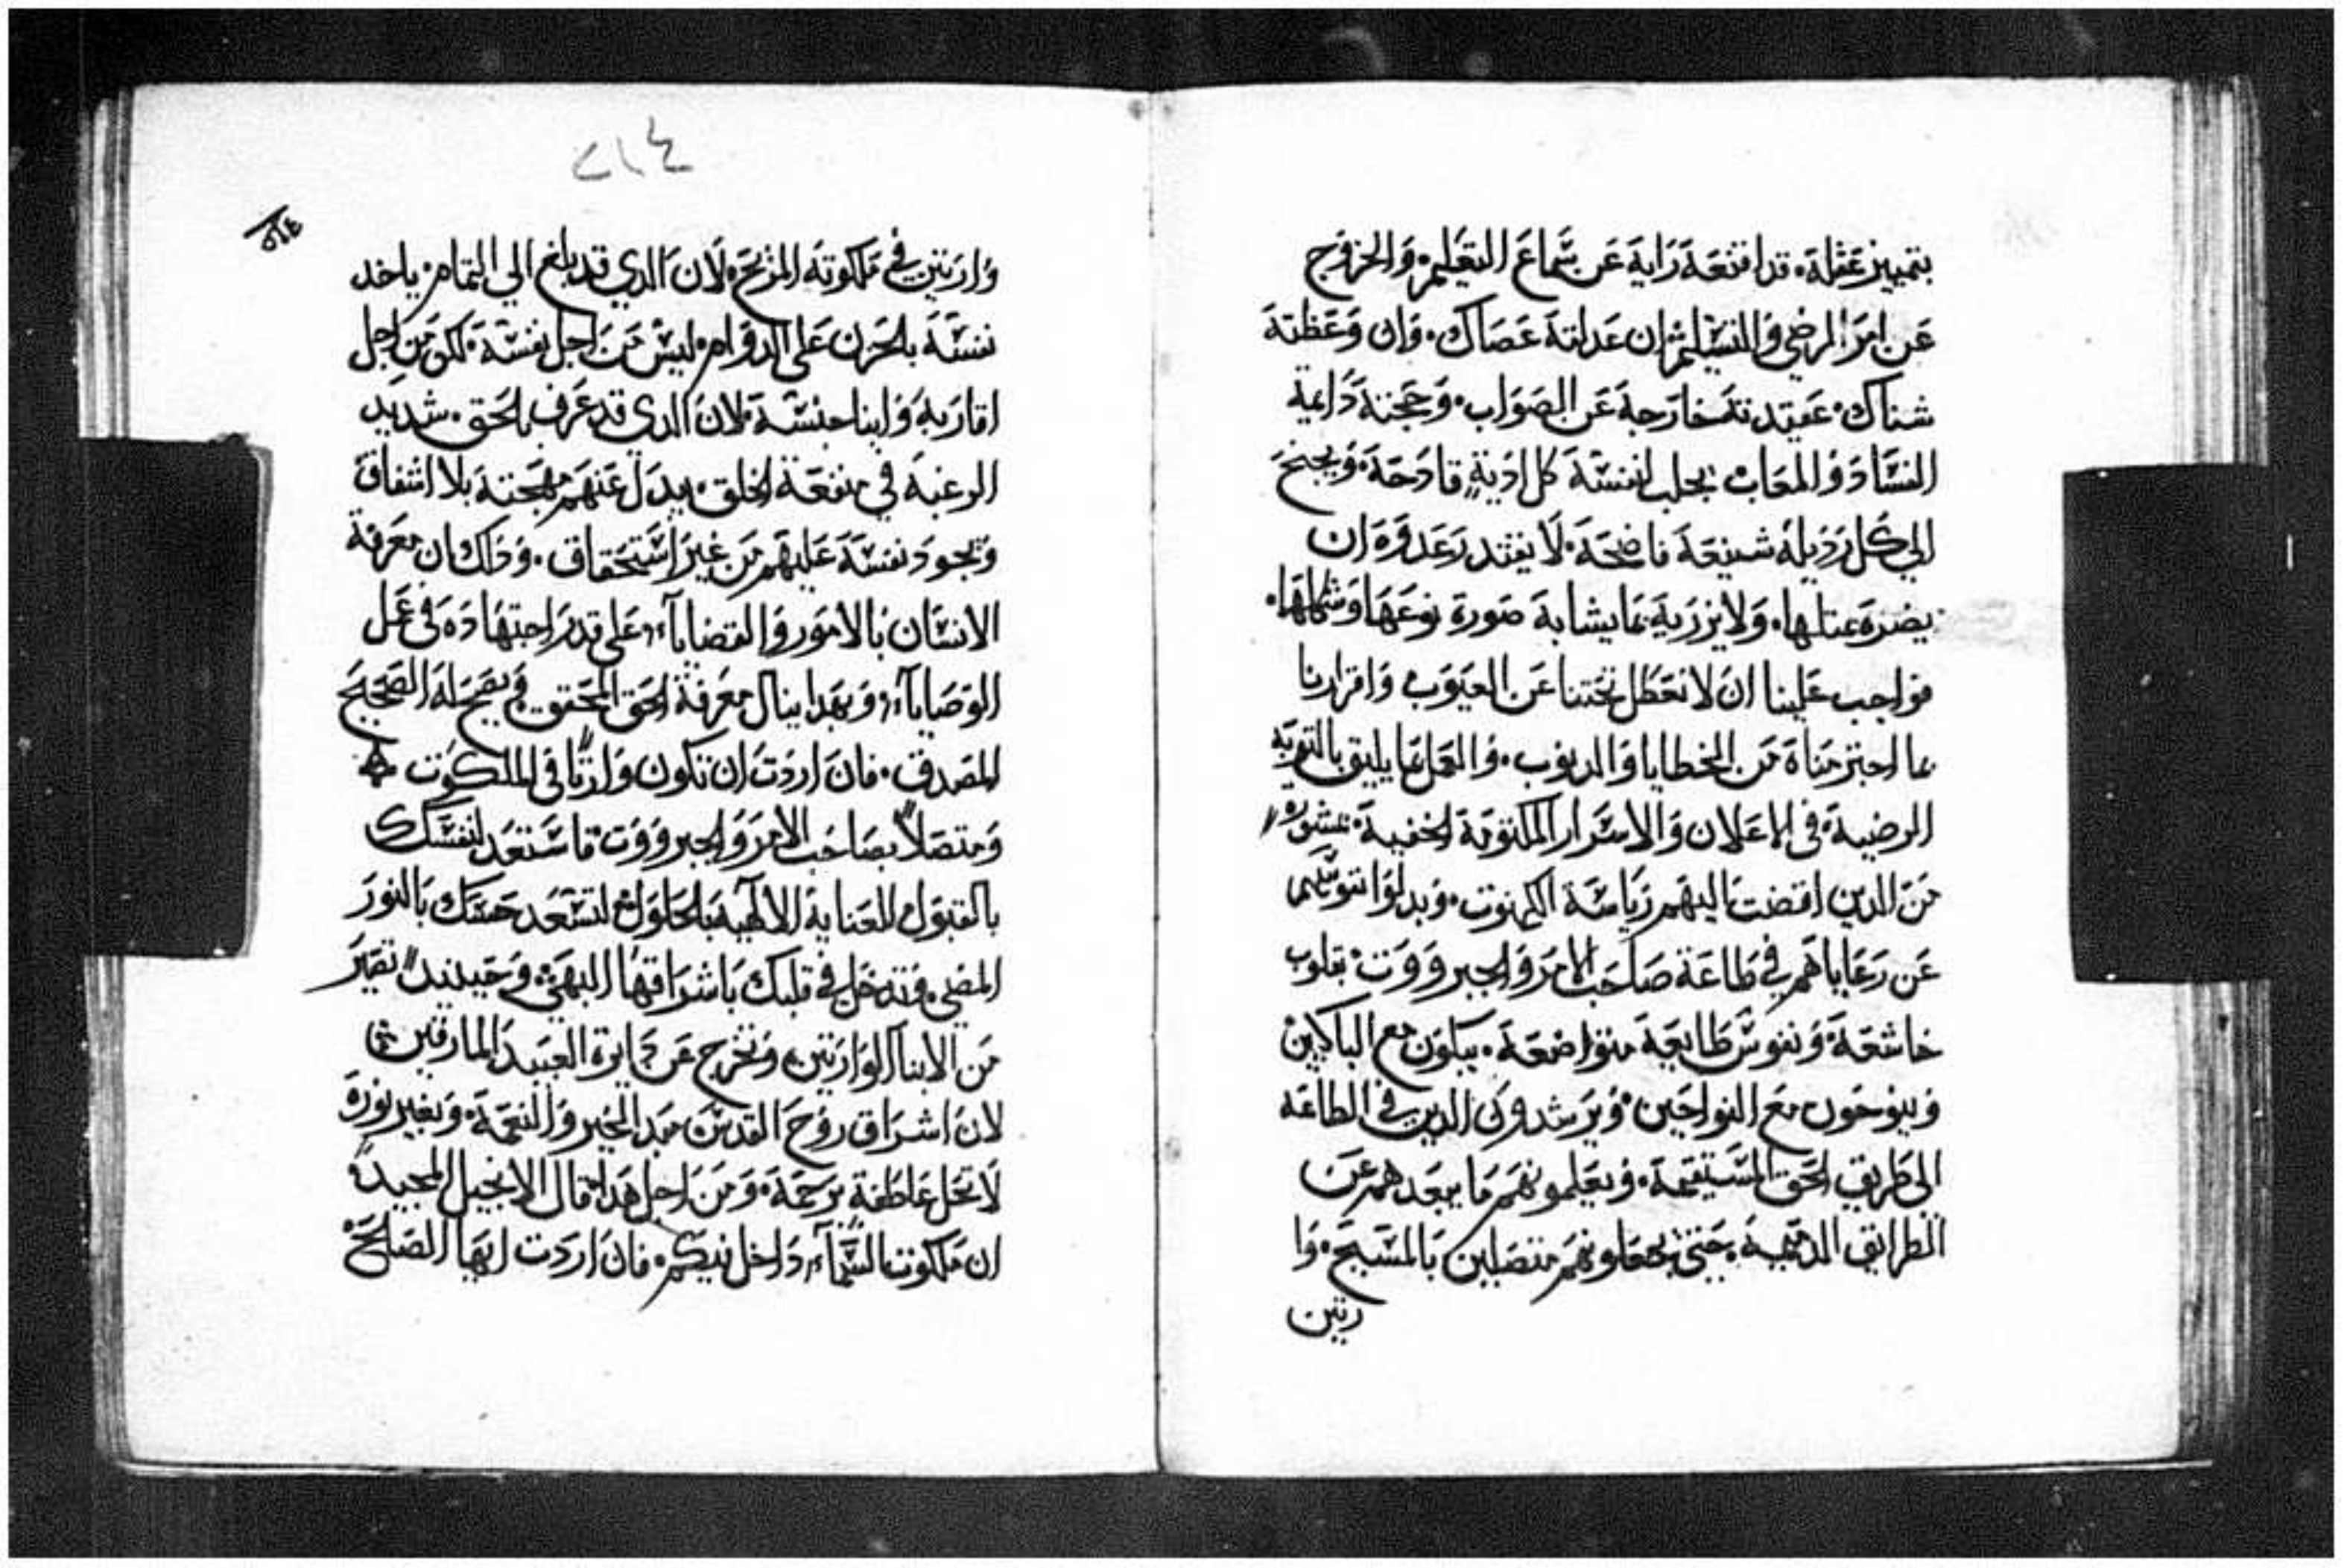 بتمييز عقله. قد اقنعه رايه عن سماع التعليم. والخروج
عن امر المرضي والتسليم. ان عدلته عصاك. وان وعظته
شناك. عقيدته خارجة عن الصواب. وحجته داعية
الفساد والمعاب. يجلب لنفسه كل اذية قادحة. ويجنح
الي كل رديلة شنيعة فاضحة. لا يفتد رعدوه ان
يضره عتلها. ولا يزريه بما يشابه صورة نوعها وشكلها.
فواجب علينا ان لا نعطل بحثنا عن العيوب واقرارنا
بما اجترمناه من الخطايا والدنوب. والعمل بما يليق بالتوبه
الرضية في الاعلان والاسرار المكتومة الخفية. بمشوره
من الدين افضت اليهم رياسة الكهنوت. وبدلوا نفوسهم
عن رعاياهم في طاعة صاحب الامر والجبرووت. بقلوب
خاشعة ونفوس طايعة متواضعة. يبكون مع الباكين
وينوحون مع النواحين. ويرشدون الدين في الطاعه
الي طريق الحق المستقيمة. ويعلمونهم ما يبعدهم عن
الطرايق الدميمه. حتي يجعلونهم متصلين بالمسيح. وا
رتين
٢١٤
٢١٤
وارتين في ملكوته المريح. لان الدي قد بلغ الي التمام. ياخد
نفسه بالحزن علي الدوام. ليس من اجل نفسه. لكن من اجل
اقاربه وابنا جنسه. لان الدي قد عرف الحق. شديد
الرغبة في منفعة الخلق. يبدل عنهم مهجته بلا اشفاق
ويجود نفسه عليهم من غير استحقاق. وذاك ان معرفة
الانسان بالامور والقضايا. علي قدر اجتهاده في عمل
الوصايا. وبهدا ينال معرفة الحق المحقق. ويصح له الصحيح
المصدق. فان اردت ان تكون وارثا في الملكوت
ومتصلا بصاحب الامر والجبرووت. فاستعد لنفسك
بالقبول للعناية الالهية بالحلول. لتسعد حسك بالنور
المضي. وتدخل في قلبك باشراقها البهي. وحينيد تصير
من الابنا الوارتين. وتخرج عن دايرة العبيد المارقين.
لان اشراق روح القدس مبدا الخير والنعمة. وبغير نوره
لا تحل عاطفة برحمة. ومن اجل هدا قال الانجيل المجيد
ان ملكوت السماء داخل فيكم. فان اردت ايها الصالح